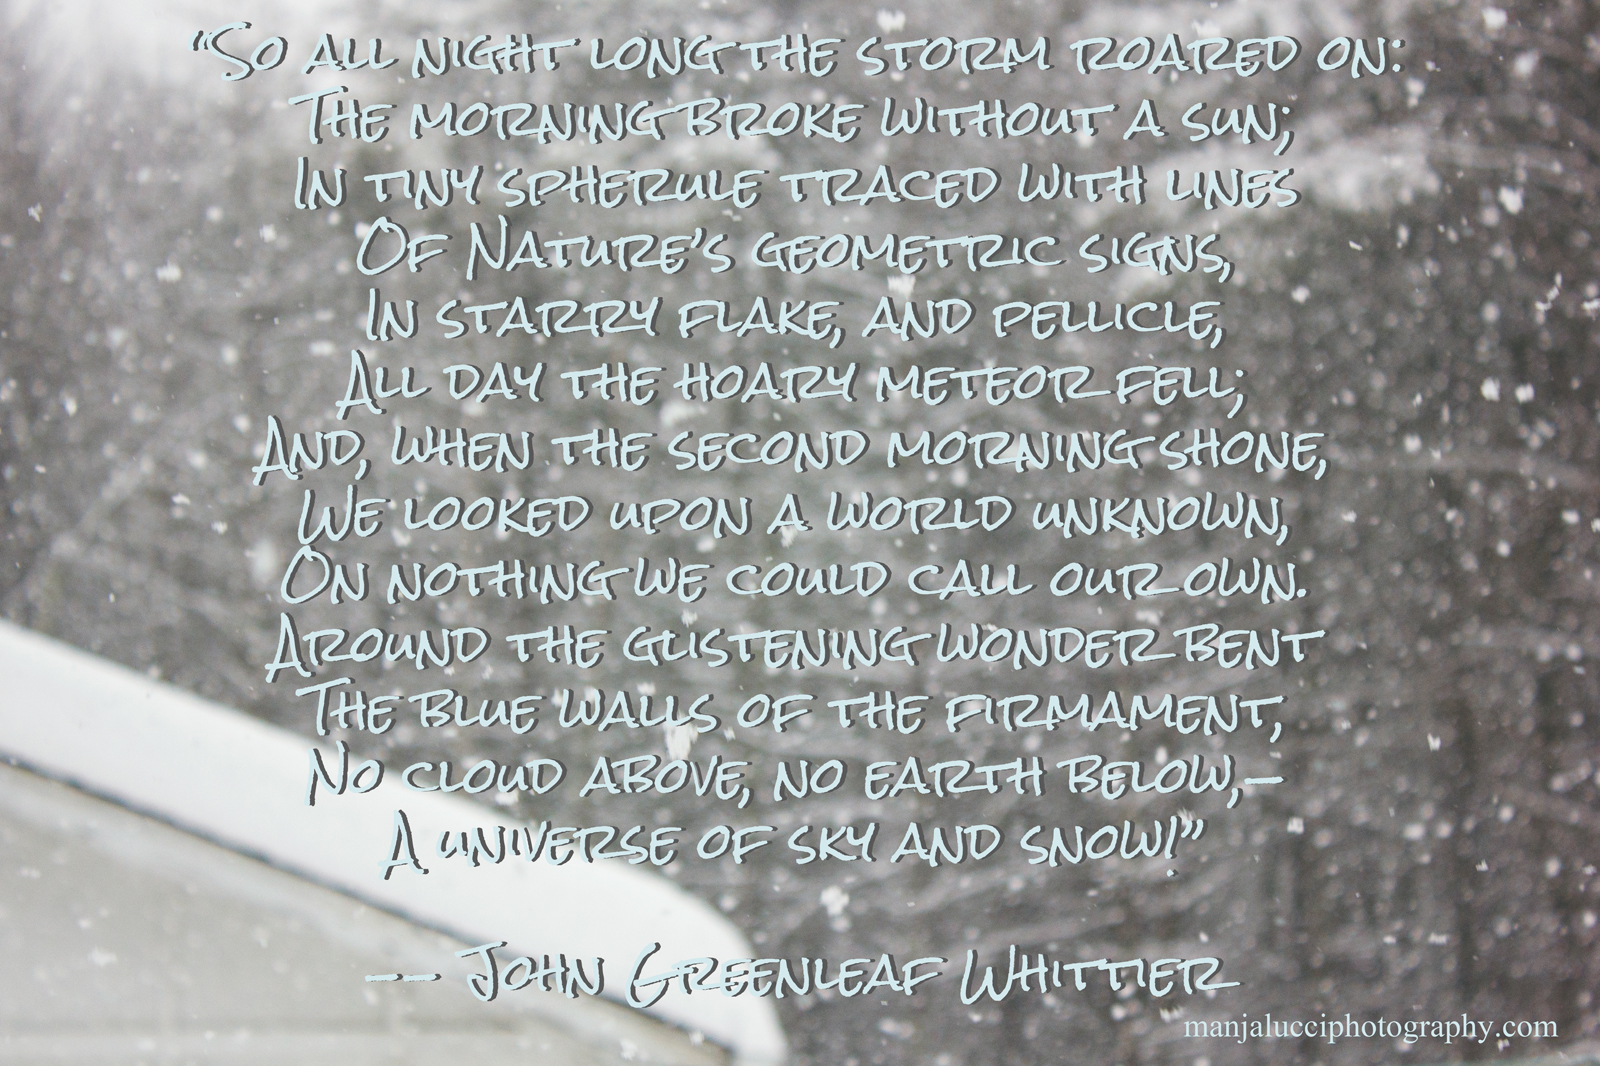 “So all night long the storm roared on:
The morning broke without a sun;
In tiny spherule traced with lines
Of Nature’s geometric signs,
In starry flake, and pellicle,
All day the hoary meteor fell;
And, when the second morning shone,
We looked upon a world unknown,
On nothing we could call our own.
Around the glistening wonder bent
The blue walls of the firmament,
No cloud above, no earth below,—
A universe of sky and snow!”
-- John Greenleaf Whittier
manjalucciphotography.com